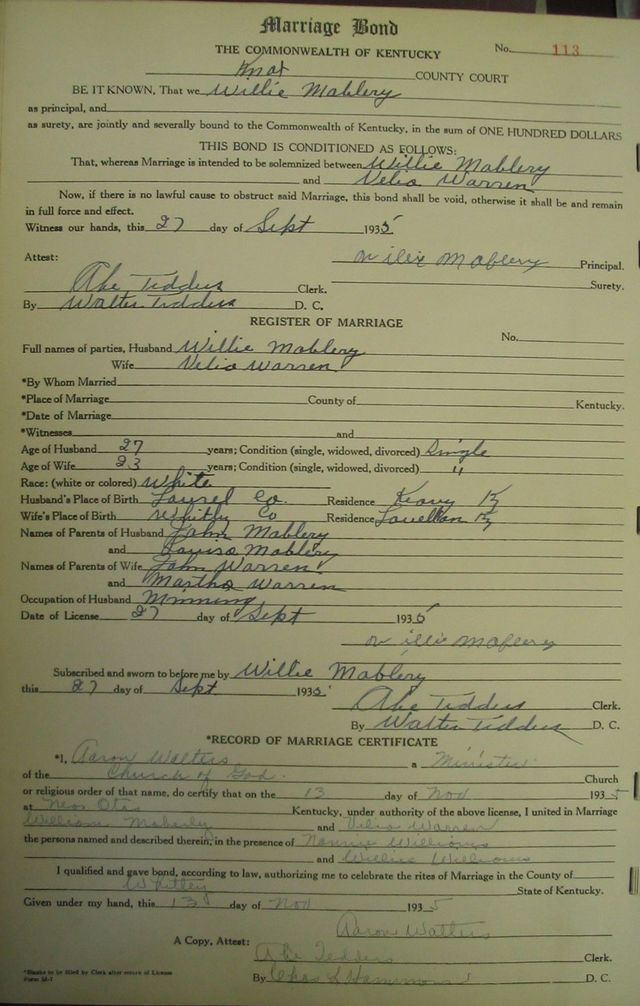 Marriage Bond
THE COMMONWEALTH OF KENTUCKY No. 113
Knox COUNTY COURT
BE IT KNOWN, That we Willie Mablery
as principal, and
as surety, are jointly and severally bound to the Commonwealth of Kentucky, in the sum of ONE HUNDRED DOLLARS
THIS BOND IS CONDITIONED AS FOLLOWS:
That, whereas Marriage is intended to be solemnized between Willie Mablery
and Velia Warren
Now, if there is no lawful cause to obstruct said Marriage, this bond shall be void, otherwise it shall be and remain
in full force and effect.
Witness our hands, this 27 day of Sept 1935
Attest: Willie Mablery Principal.
Abe Tidders Clerk. Surety.
By Walter Tidders D. C.
REGISTER OF MARRIAGE
Full names of parties, Husband Willie Mablery No.
Wife Velia Warren
*By Whom Married
*Place of Marriage County of Kentucky.
*Date of Marriage
*Witnesses and
Age of Husband 27 years; Condition (single, widowed, divorced) Single
Age of Wife 23 years; Condition (single, widowed, divorced) "
Race: (white or colored) White
Husband's Place of Birth Laurel Co. Residence Keavy Ky
Wife's Place of Birth Whitly Co Residence Ky
Names of Parents of Husband John Mablery
and Louisa Mablery
Names of Parents of Wife John Warren
and Martha Warren
Occupation of Husband Minning
Date of License 27 day of Sept 1935
Willie Mablery
Subscribed and sworn to before me by Willie Mablery
this 27 day of Sept 1935
Abe Tidders Clerk.
By Walter Tidders D. C.
*RECORD OF MARRIAGE CERTIFICATE
*I, Aaron Walters a Minister
of the Church of God. Church
or religious order of that name, do certify that on the 13 day of Nov 1935
at Near Otis Kentucky, under authority of the above license, I united in Marriage
William Moberly and Velia Warren
the persons named and described therein, in the presence of Nannie Williams
and Willie Williams
I qualified and gave bond, according to law, authorizing me to celebrate the rites of Marriage in the County of
Whitley State of Kentucky.
Given under my hand, this 13 day of Nov 1935
Aaron Walters
A Copy, Attest: Abe Tedders Clerk.
*Blanks to be filled by Clerk after return of License
Form M-7
By Chas L Hammons D. C.